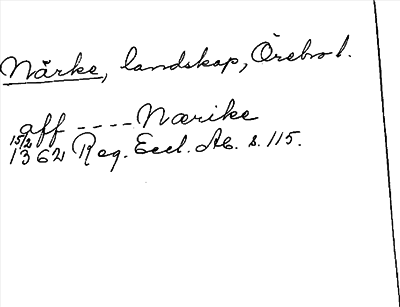 Närke, landskap, Örebro l.
aff ---- Nærike
15/2 1362 Reg. Eccl. Ab. s. 115.